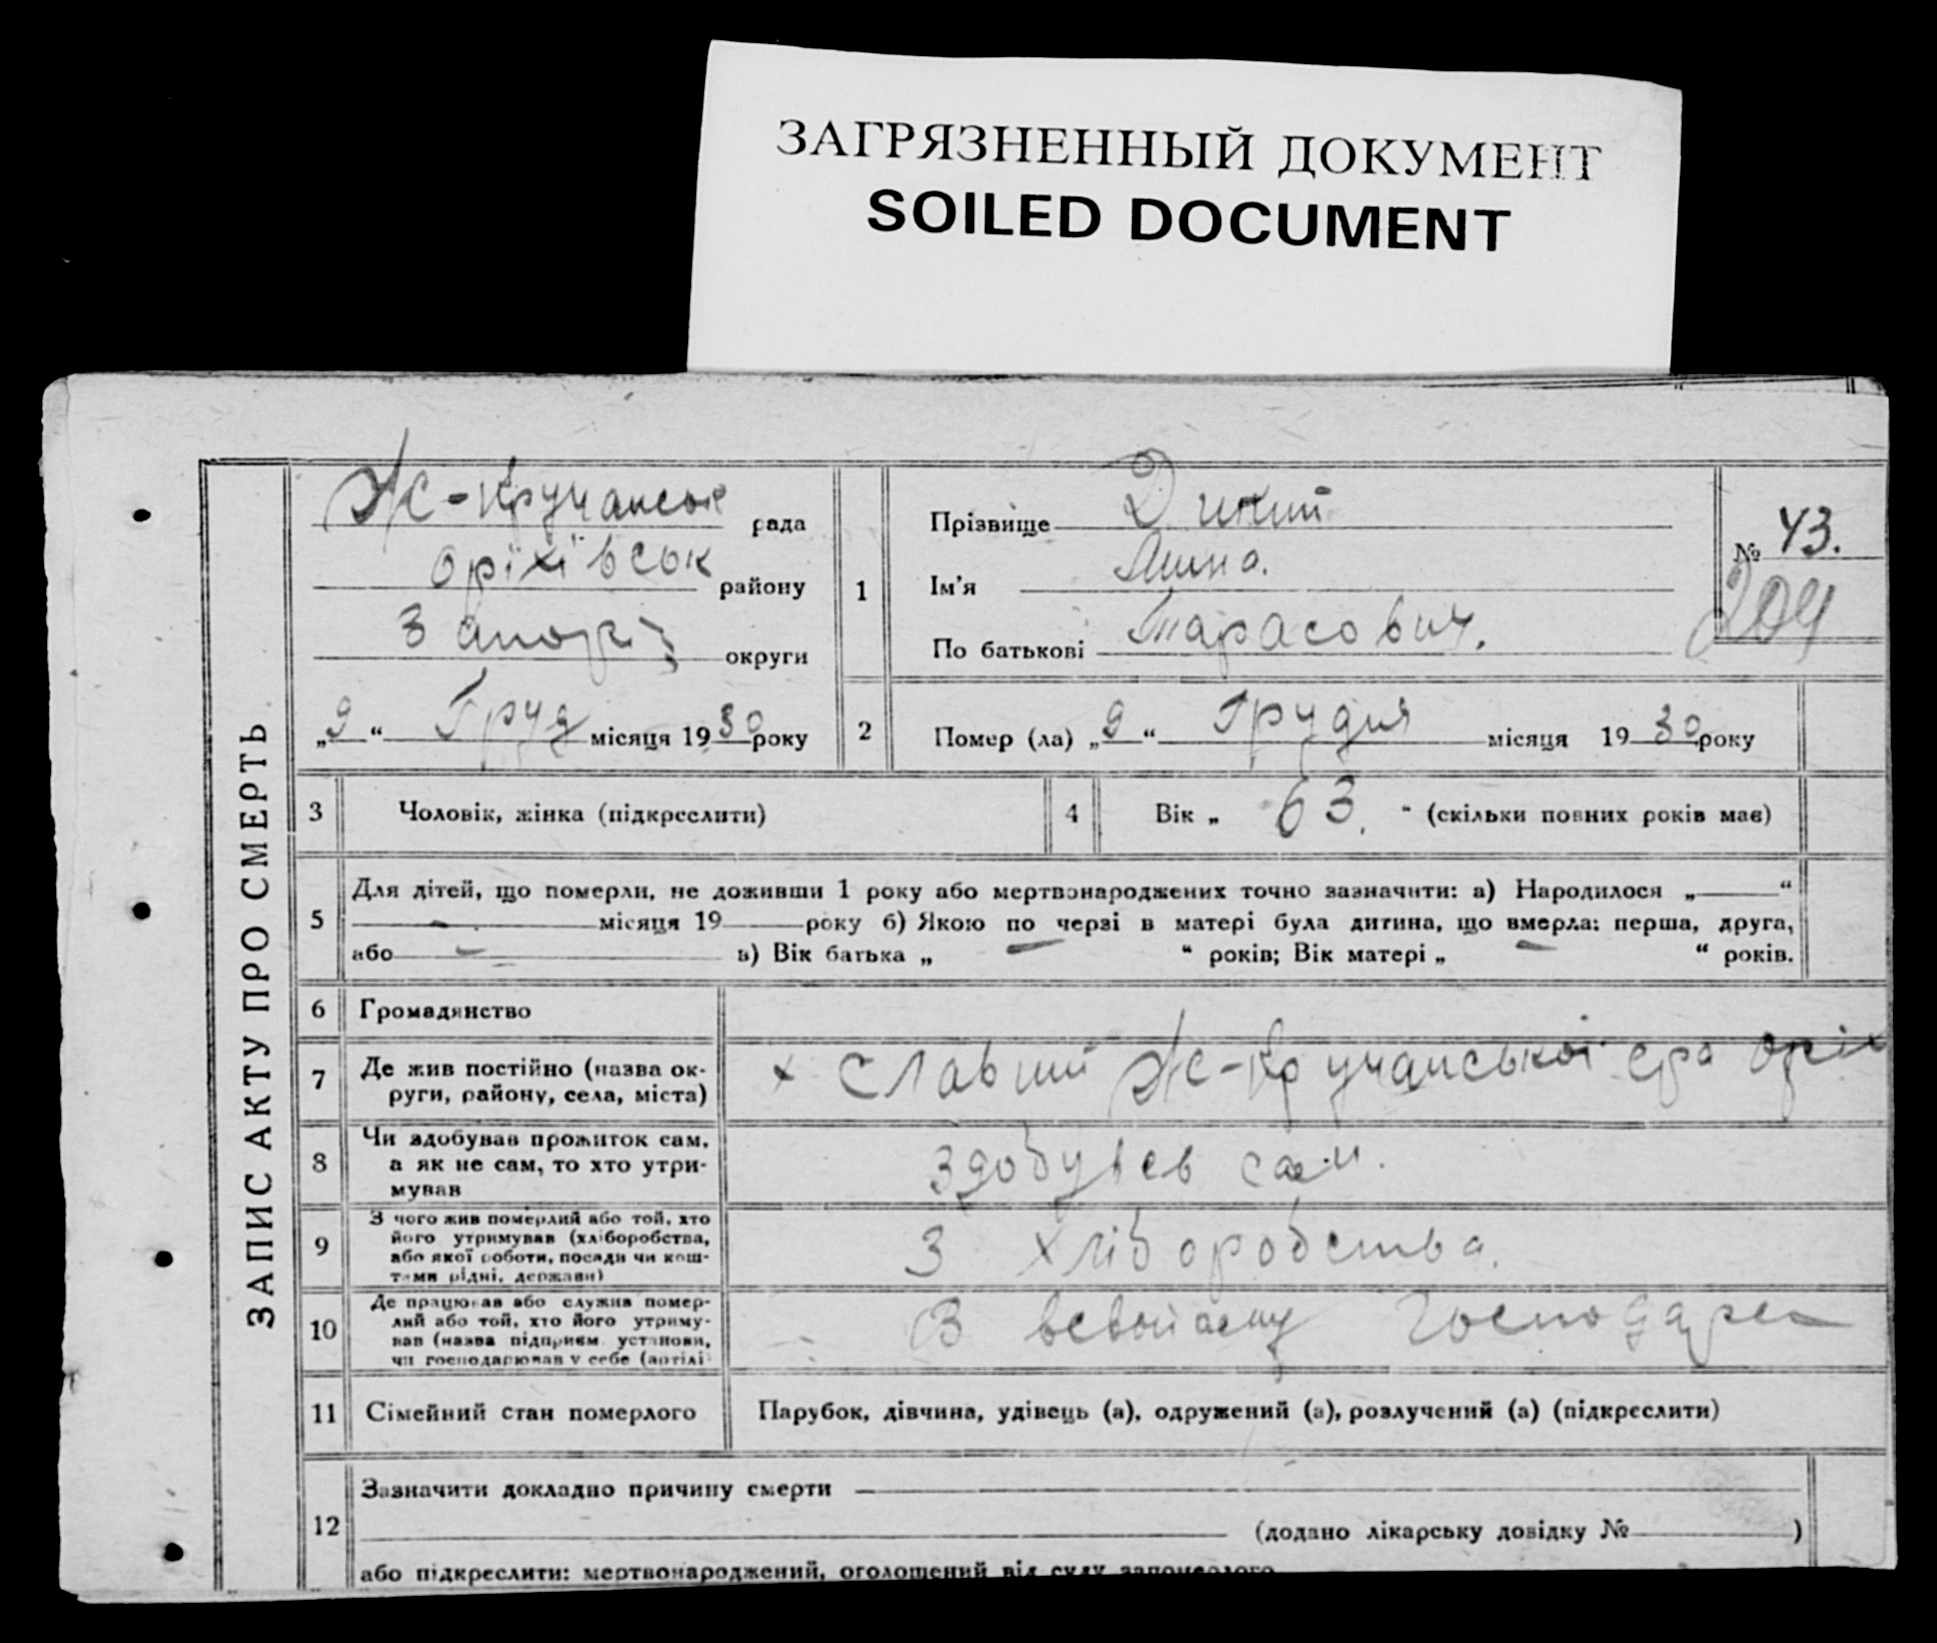 ЗАГРЯЗНЕННЫЙ ДОКУМЕНТ
SOILED DOCUMENT
ЗАПИС АКТУ ПРО СМЕРТЬ
Ж-Кручанськ рада
Оріхівськ району
Запоріз округи
„9“ Груд місяця 1930 року
1
Прізвище Дикий
Ім'я Мина.
По батькові Тарасович.
№ 43.
204
2 Помер (ла) „9“ Грудня місяця 1930 року
3 Чоловік, жінка (підкреслити)
4 Вік „ 63. “ (скільки повних років має)
5 Для дітей, що померли, не доживши 1 року або мертвонароджених точно зазначити: а) Народилося „——“
місяця 19 року б) Якою по черзі в матері була дитина, що вмерла: перша, друга,
або — в) Вік батька „ — “ років; Вік матері „ — “ років.
6 Громадянство
7 Де жив постійно (назва ок-
руги, району, села, міста)
х Славний Ж-Кручанської с/ра Оріх
8 Чи здобував прожиток сам,
а як не сам, то хто утри-
мував
Здобував сам.
9 З чого жив померлий або той, хто
його утримував (хліборобства,
або якої роботи, посади чи кош-
тами рідні, держави)
З хліборобства.
10 Де працював або служив помер-
лий або той, хто його утриму-
вав (назва підприєм. установи,
чи господарював у себе (артілі
В Господарс
11 Сімейний стан померлого
Парубок, дівчина, удівець (а), одружений (а), розлучений (а) (підкреслити)
12 Зазначити докладно причину смерти
(додано лікарську довідку № )
або підкреслити: мертвонароджений, оголошений від суду запомерлого